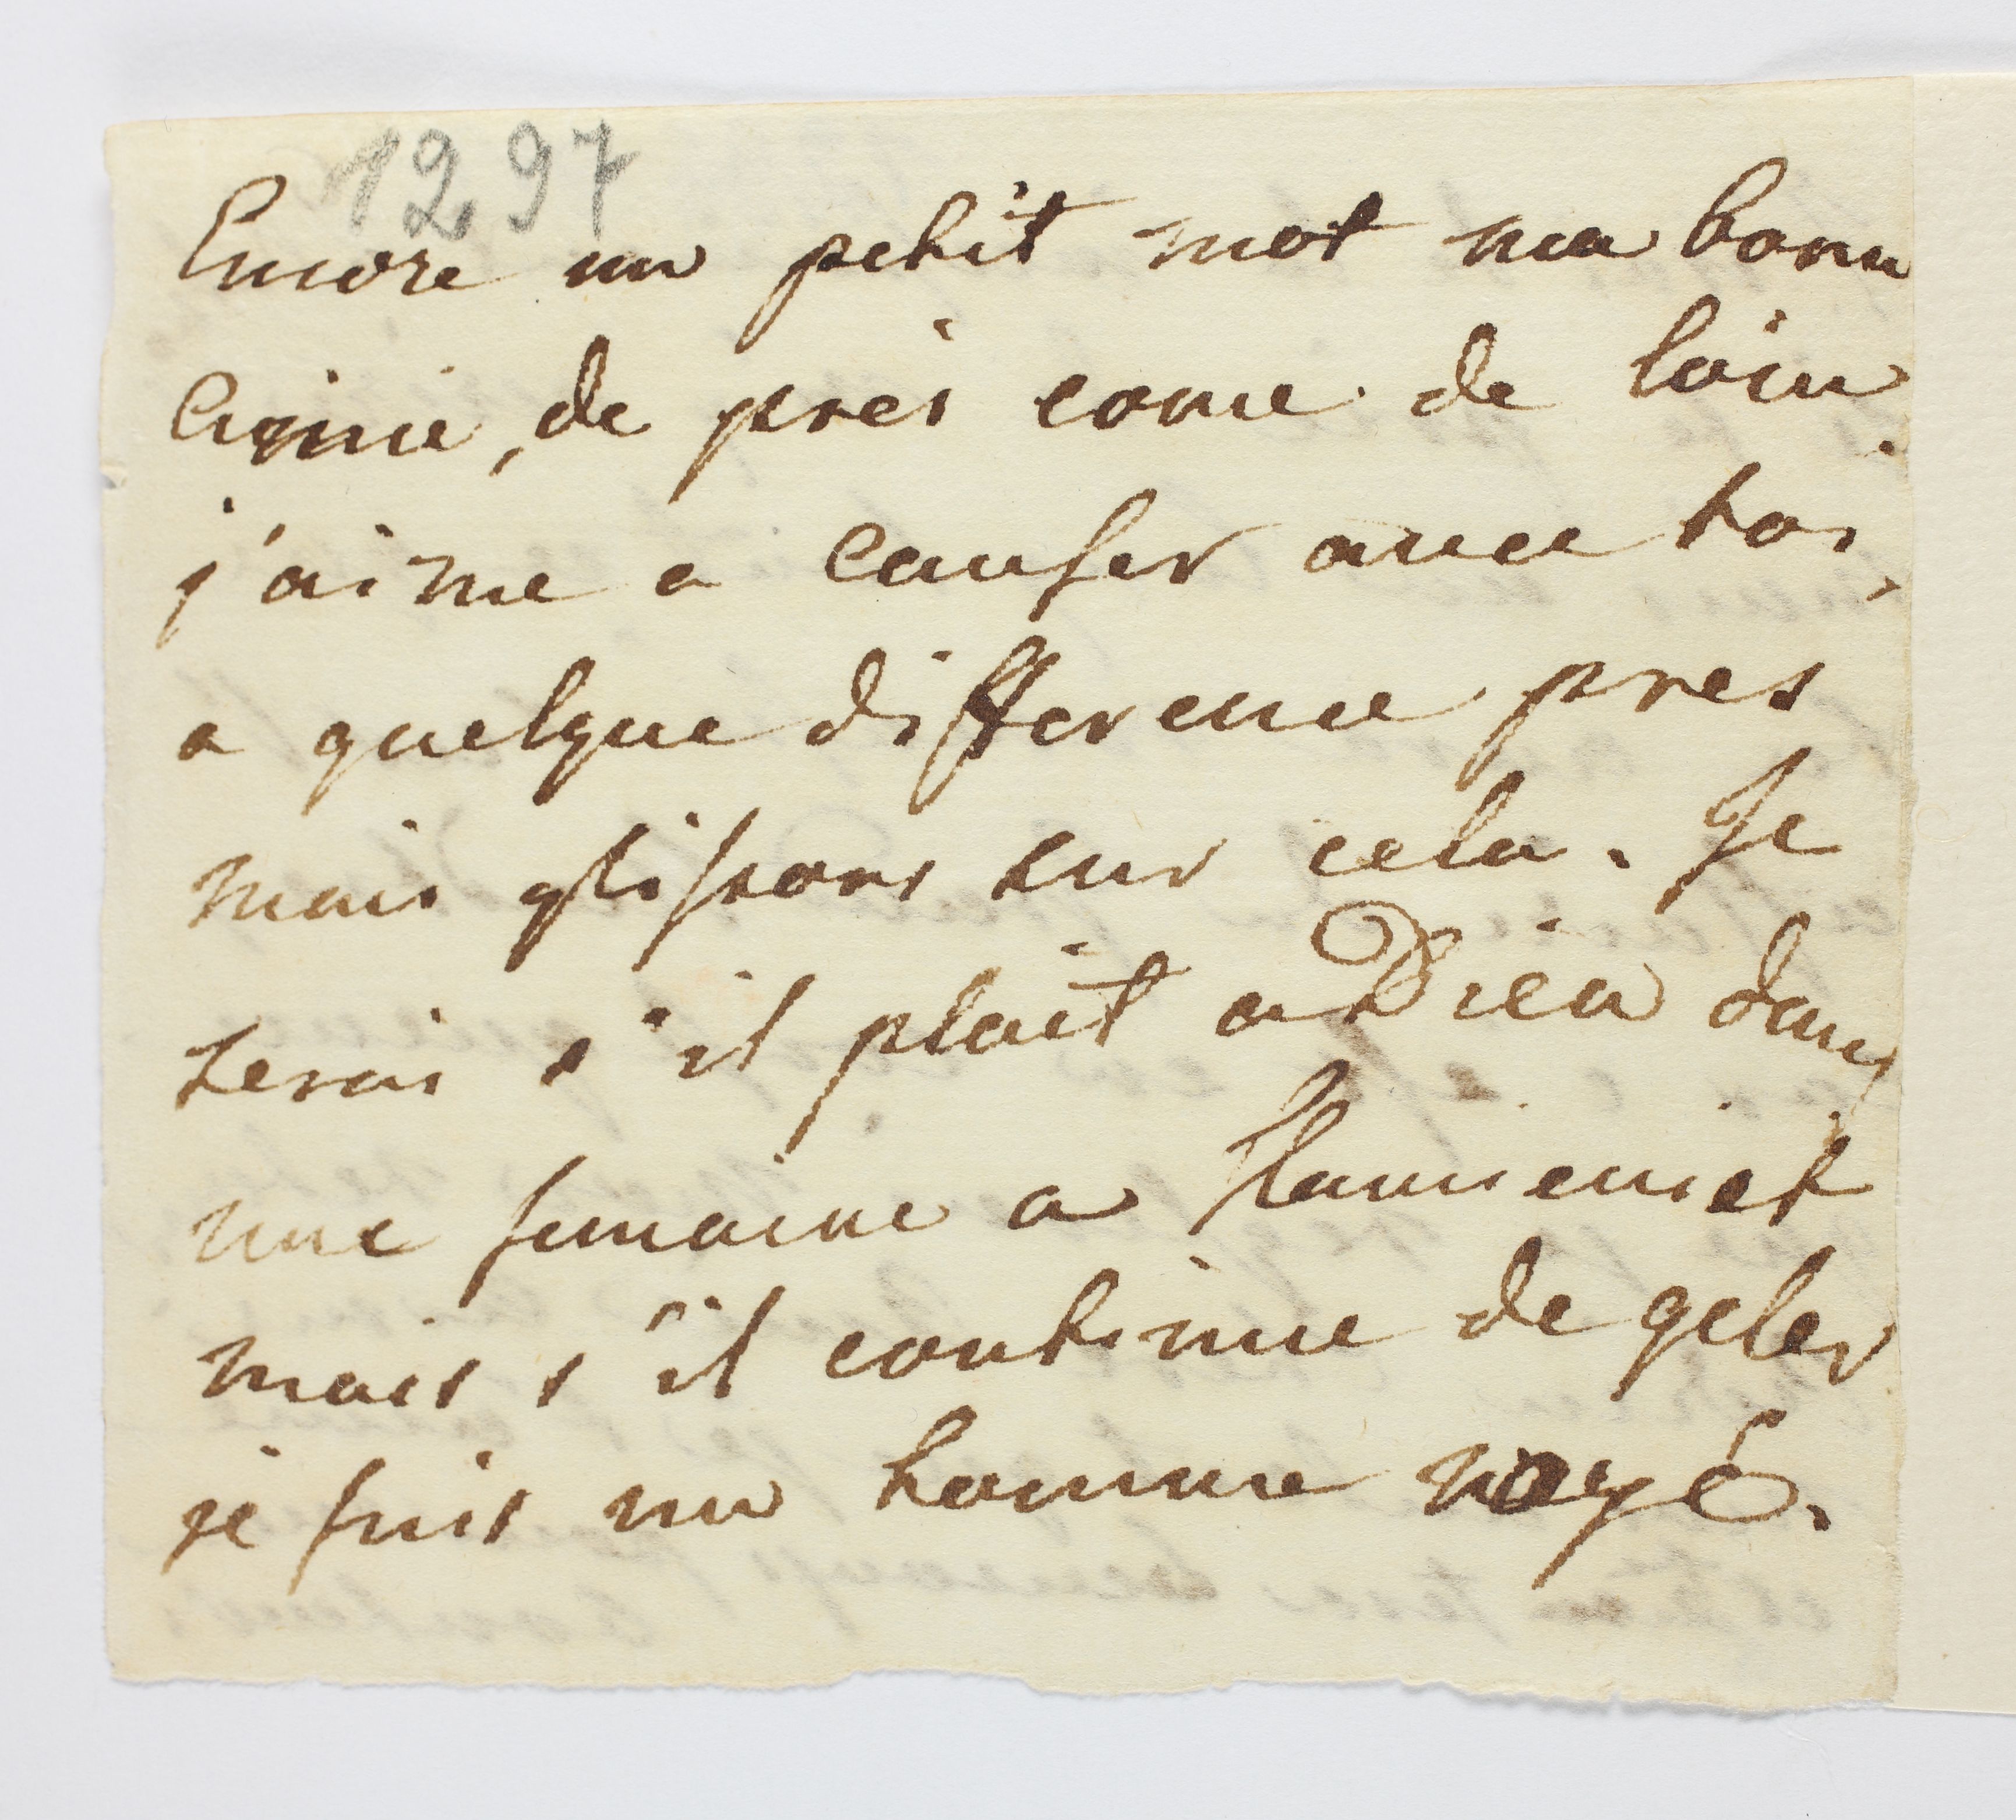 1297
Encore un petit mot ma bonne
Eugenie, de près come de loin
j'aime a causer avec toi,
a quelque difference pres
mais glissons sur cela. Je
serai s'il plait a Dieu dans
une semaine a
mais s'il continue de geler
je suis un homme noyé.